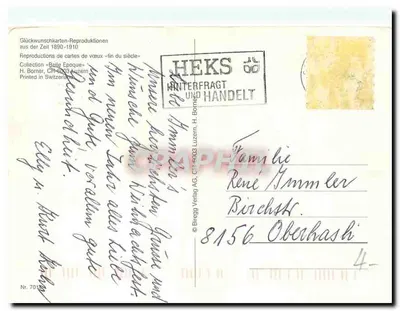 Glückwunschkarten-Reproduktionen
aus der Zeit 1890-1910
Reproductions de cartes de vœux «fin du siècle»
Collection «Belle Epoque»
H. Borner, CH-6003 Luzern
Printed in Switzerland
HEKS
HINTERFRAGT
UND HANDELT
Liebe Immler's
Unsere herzlichsten Grüsse und
Wünsche zum Weihnachtsfest.
Im neuen Jahr alles Liebe
und Gute vor allem gute
Gesundheit.
Elly u. Kurt
© Beregg Verlag AG, CH-6003 Luzern, H. Borner
Familie
René Immler
Birchstr.
8156 Oberhasli
4.-
Nr. 701